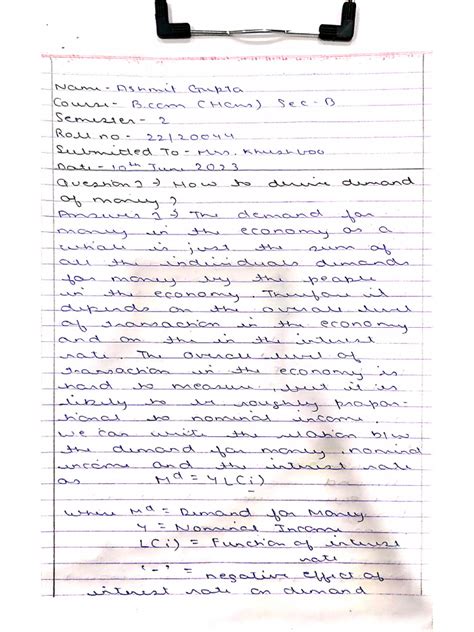 Name - Ashmit Gupta
Course - B.com (Hons) Sec - B
Semester - 2
Roll no - 22/20044
Submitted To - Mrs. Khushboo
Date - 10th June 2023
Question 2 → How to derive demand
of money?
Answer 2 → The demand for
money in the economy as a
whole is just the sum of
all the individuals demands
for money by the people
in the economy. Therefore it
depends on the overall level
of transaction in the economy
and on the in the interest
rate. The overall level of
transaction in the economy is
hard to measure, but it is
likely to be roughly propor-
tional to nominal income.
We can write the relation b/w
the demand for money, nominal
income and the interest rate
as Md = YL(i)
-
where Md = Demand for Money
Y = Nominal Income
L(i) = Function of interest
rate
'-' = negative effect of
interest rate on demand